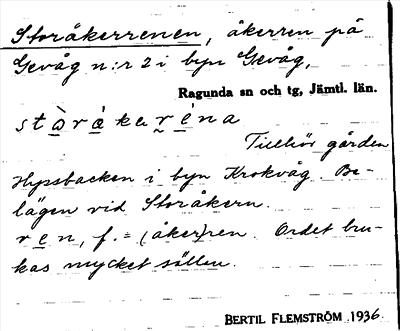 Storåkerrenen, åkerren på
Gevåg n:r 2 i byn Gevåg,
Ragunda sn och tg, Jämtl. län.
stò̱rà̱kerḙ́na
Tillhör gården
Hypsbacken i byn Krokvåg. Be-
lägen vid Storåkern.
ren, f. = (åker)ren. Ordet bru-
kas mycket sällan.
BERTIL FLEMSTRÖM 1936